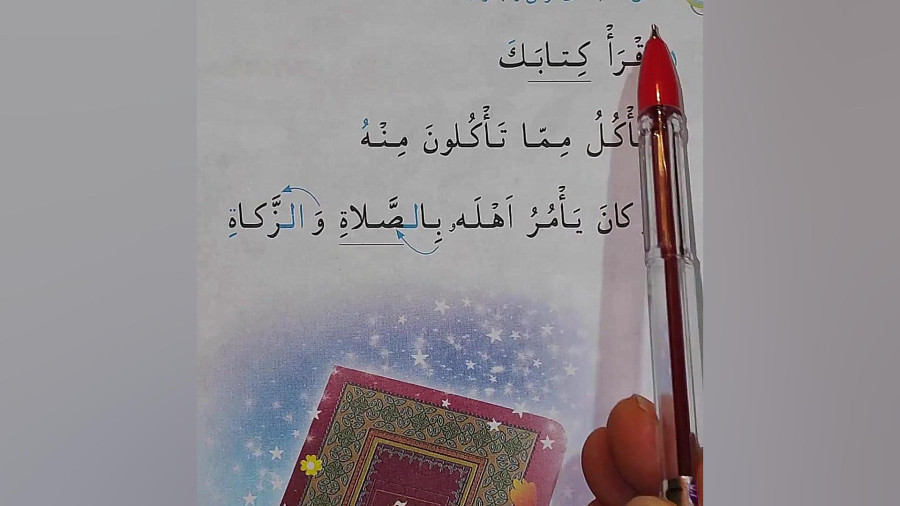 قْرَأْ كِتابَكَ
أْكُلُ مِمّا تَأْكُلونَ مِنْهُ
كانَ يَأْمُرُ اَهْلَهٗ بِالصَّلاةِ وَ الزَّكاةِ